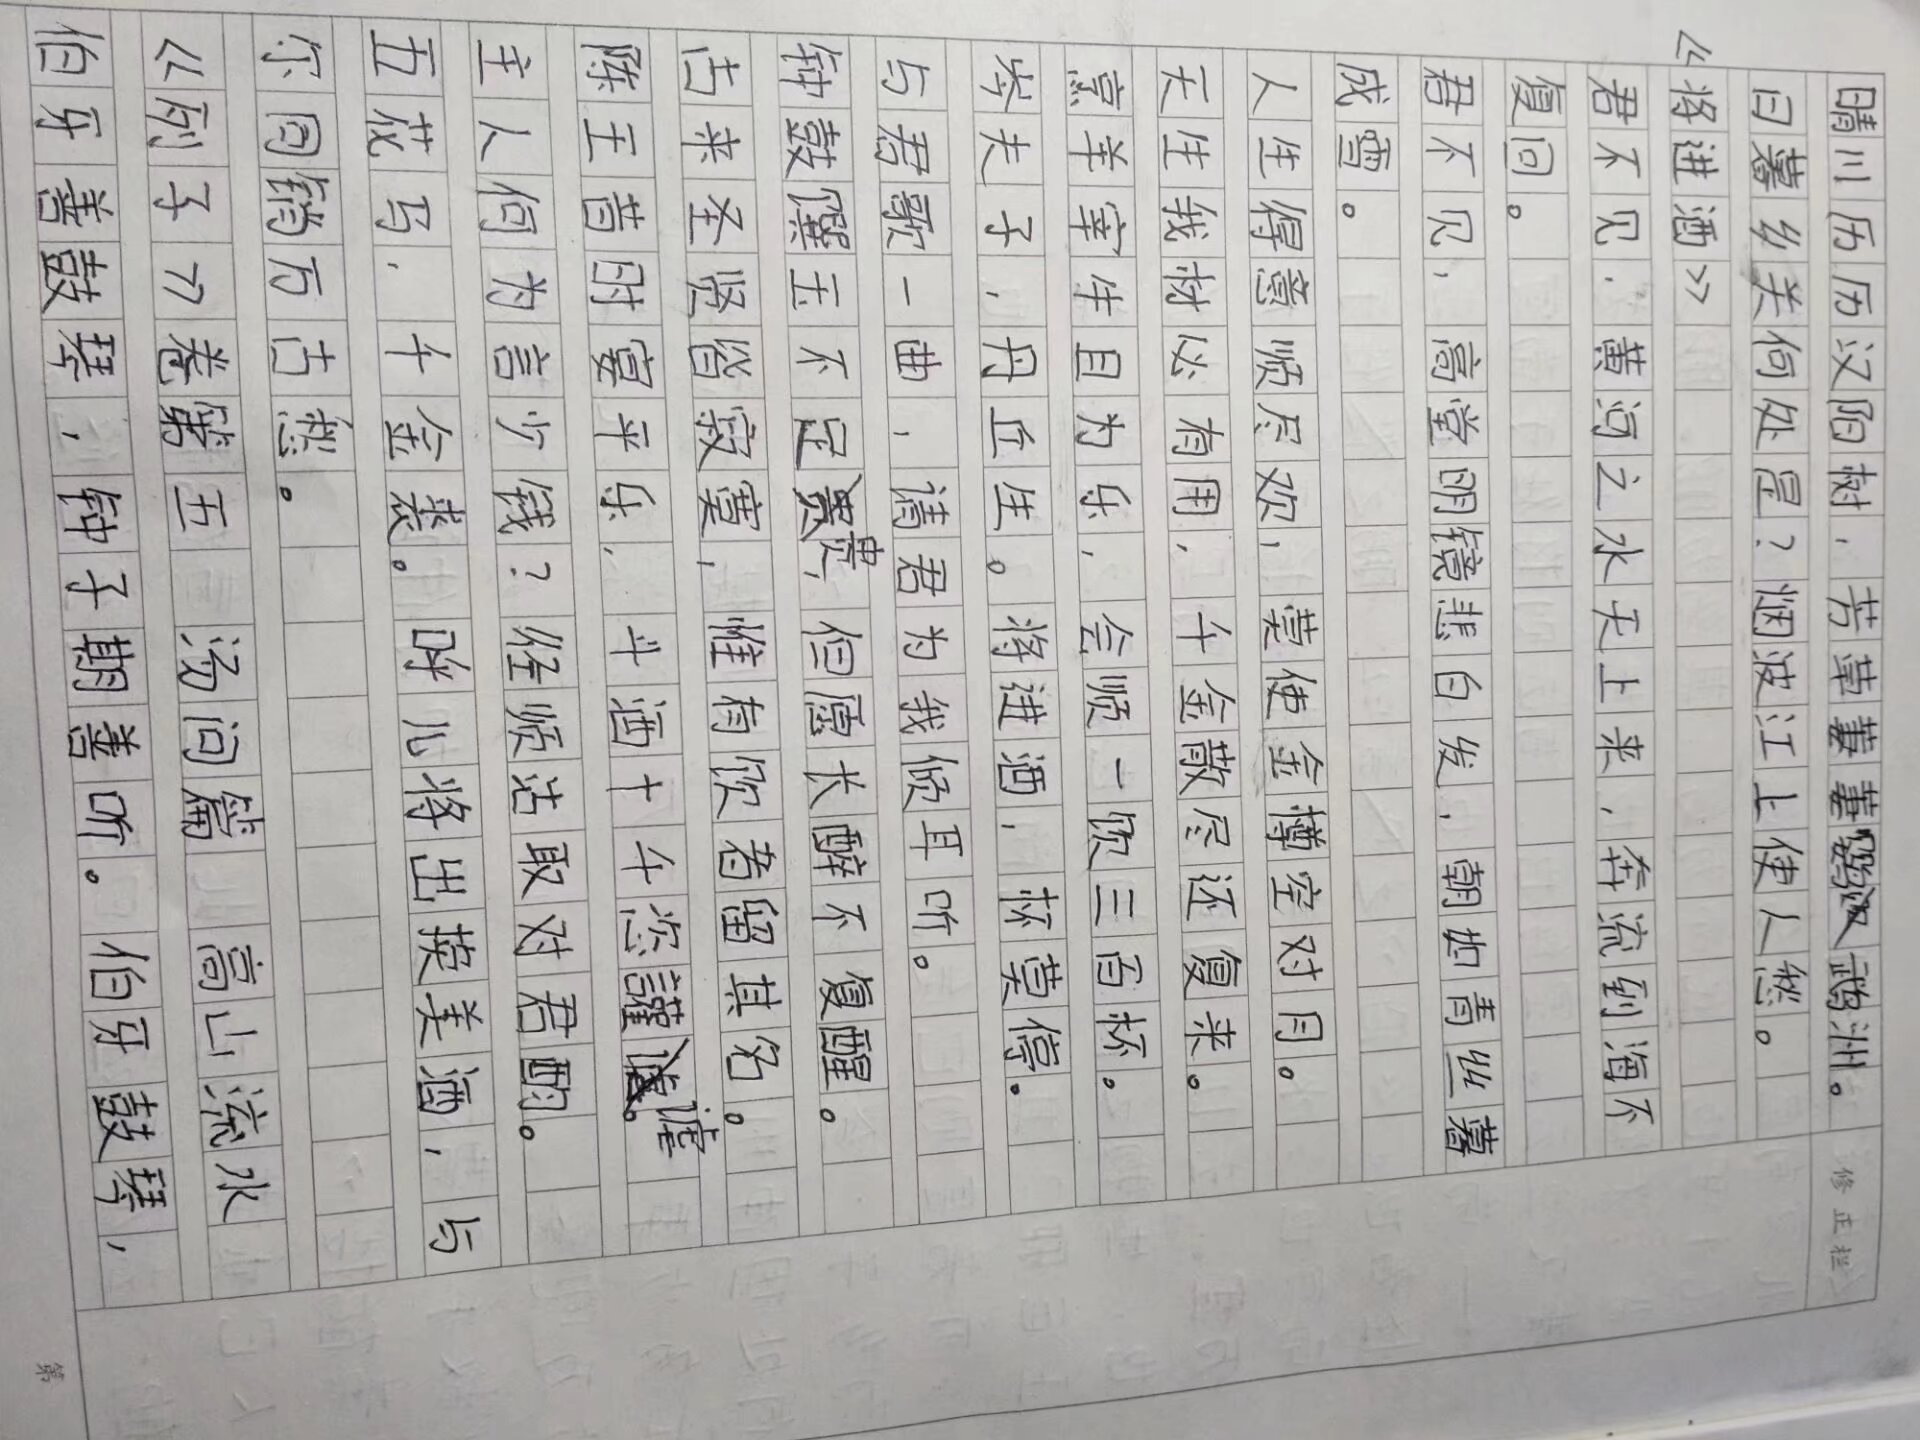 晴川历历汉阳树,芳草萋萋鹦鹉洲。
日暮乡关何处是?烟波江上使人愁。
《将进酒》
君不见,黄河之水天上来,奔流到海不
复回。
君不见,高堂明镜悲白发,朝如青丝暮
成雪。
人生得意须尽欢,莫使金樽空对月。
天生我材必有用,千金散尽还复来。
烹羊宰牛且为乐,会须一饮三百杯。
岑夫子,丹丘生。将进酒,杯莫停。
与君歌一曲,请君为我倾耳听。
钟鼓馔玉不足贵,但愿长醉不复醒。
古来圣贤皆寂寞,惟有饮者留其名。
陈王昔时宴平乐,斗酒十千恣讙谑。
主人何为言少钱?径须沽取对君酌。
五花马,千金裘。呼儿将出换美酒,与
尔同销万古愁。
《列子》卷第五 汤问篇 高山流水
伯牙善鼓琴,钟子期善听。伯牙鼓琴,
修正栏
第